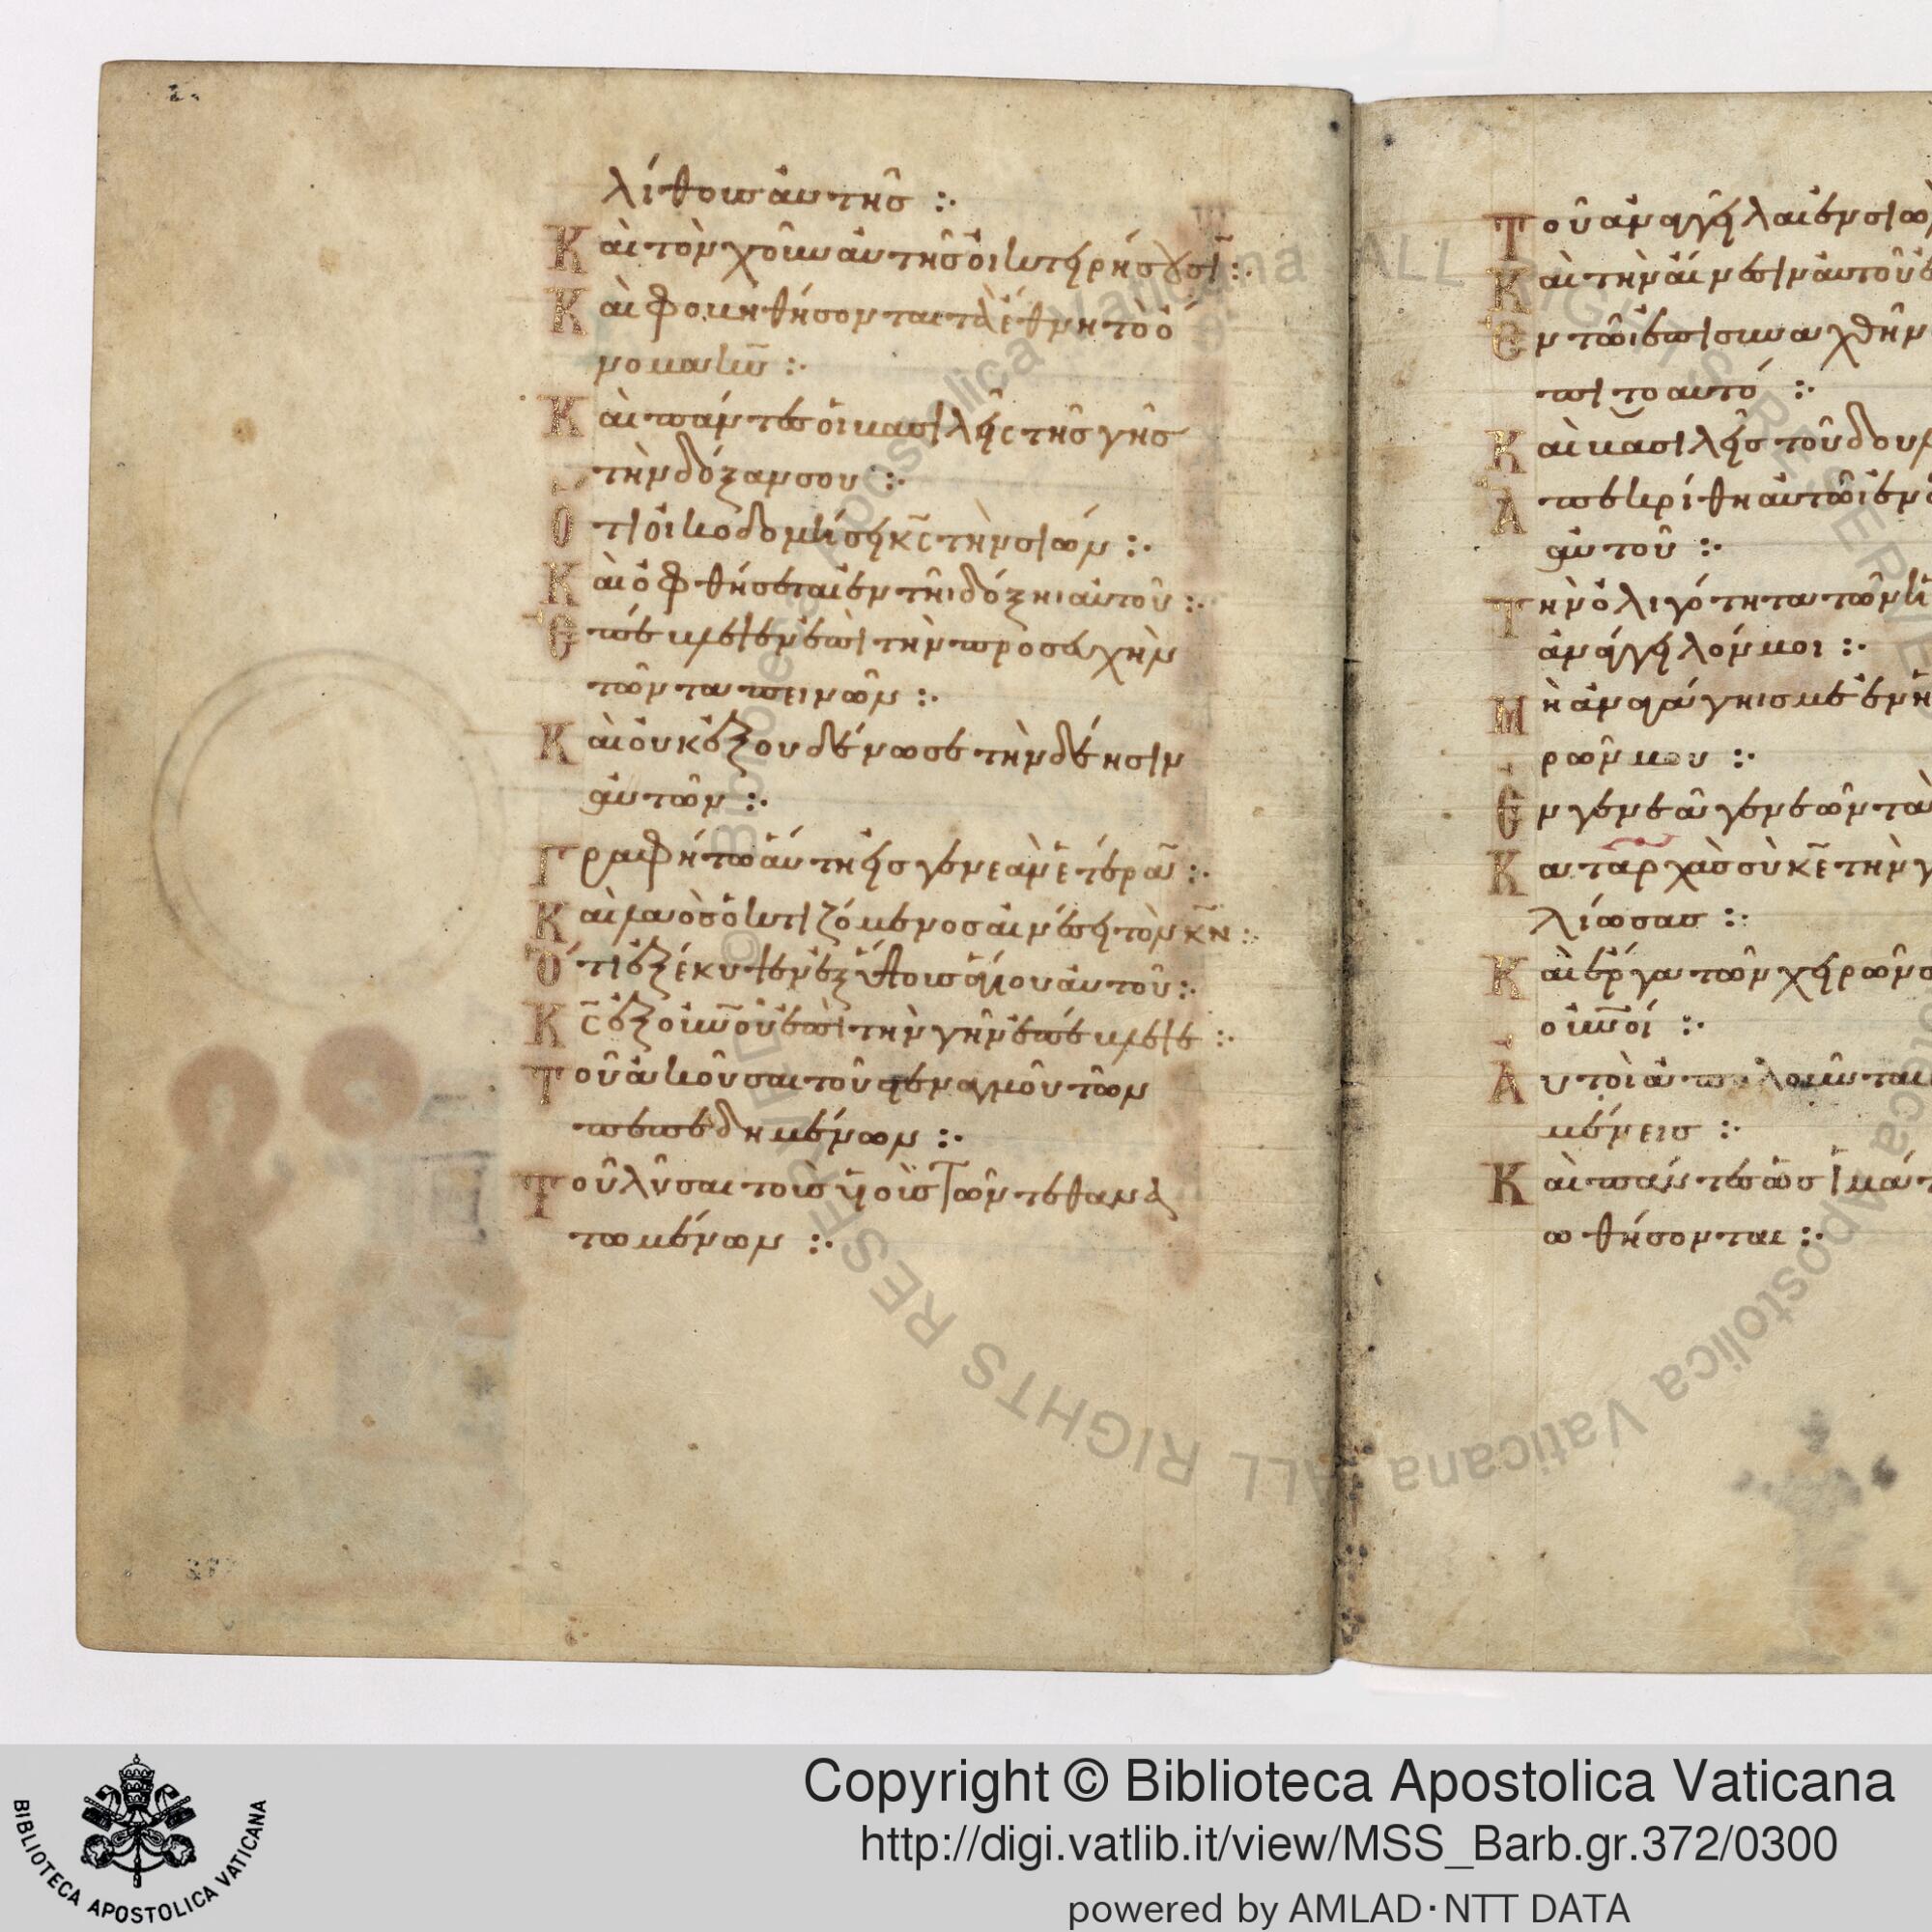 λίθους αὐτῆς :·
Καὶ τὸν χοῦν αὐτῆς οἰκτειρήσουσῖ :·
Καὶ φοβηθήσονται τὰ ἔθνη τὸ ὄ
νομα κ̅υ̅ :·
Καὶ πάντες οἱ βασιλεῖς τῆς γῆς
τὴν δόξαν σου :·
Ὅτι οἰκοδομήσει κ̅ς̅ τὴν σιών :·
Καὶ ὀφθήσεται ἐν τῆι δόξηι αὐτοῦ :·
Ἐπέβλεψεν ἐπὶ τὴν προσευχὴν
τῶν ταπεινῶν :·
Καὶ οὐκ ἐξουδένωσε τὴν δέησιν
αὐτῶν :·
Γραφήτω αὕτη εἰς γενεὰν ἑτέραν :·
Καὶ λαὸς ὁ κτιζόμενος αἰνέσει τὸν κ̅ν̅ :·
Ὅτι ἐξέκυψεν ἐξ ὕψους ἁγίου αὐτοῦ :·
κ̅ς̅ ἐξ οὐ̅νοῦ ἐπὶ τὴν γῆν ἐπέβλεψε :·
Τοῦ ἀκοῦσαι τοῦ στεναγμοῦ τῶν
πεπεδημένων :·
Τοῦ λῦσαι τοὺς υἱοὺς τῶν τεθανα
τωμένων :·
Τοῦ ἀναγγεῖλαι ἐν σιὼ
Καὶ τὴν αἴνεσιν αὐτοῦ ἐ
Ἐν τῶι ἐπισυναχθῆν
πὶ τὸ αὐτό :·
Καὶ βασιλεῖς τοῦ δουλ
Ἀπεκρίθη αὐτῶι ἐν ὁ
αὐτοῦ :·
Τὴν ὀλιγότητα τῶν ἡ
ἀνάγγειλόν μοι :·
Μὴ ἀναγάγηις με ἐν ἡ
ρῶν μου :·
Ἐν γενεᾶ γενεῶν τὰ
Κατ ἀρχὰς σὺ κ̅ε̅ τὴν γ
λίωσας :·
Καὶ ἔργα τῶν χειρῶν σ
οἱ οὐ̅νοί :·
Αὐτοὶ ἀπολοῦνται
μένεις :·
Καὶ πάντες ὡς ἱμάτ
ωθήσονται :·
Copyright © Biblioteca Apostolica Vaticana
http://digi.vatlib.it/view/MSS_Barb.gr.372/0300
powered by AMLAD·NTT DATA
BIBLIOTECA APOSTOLICA VATICANA